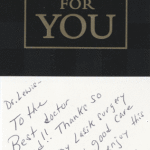 FOR
YOU
Dr. Lewis-
To the
Best doctor
Thanks so
Lasik surgery
good care
enjoy this